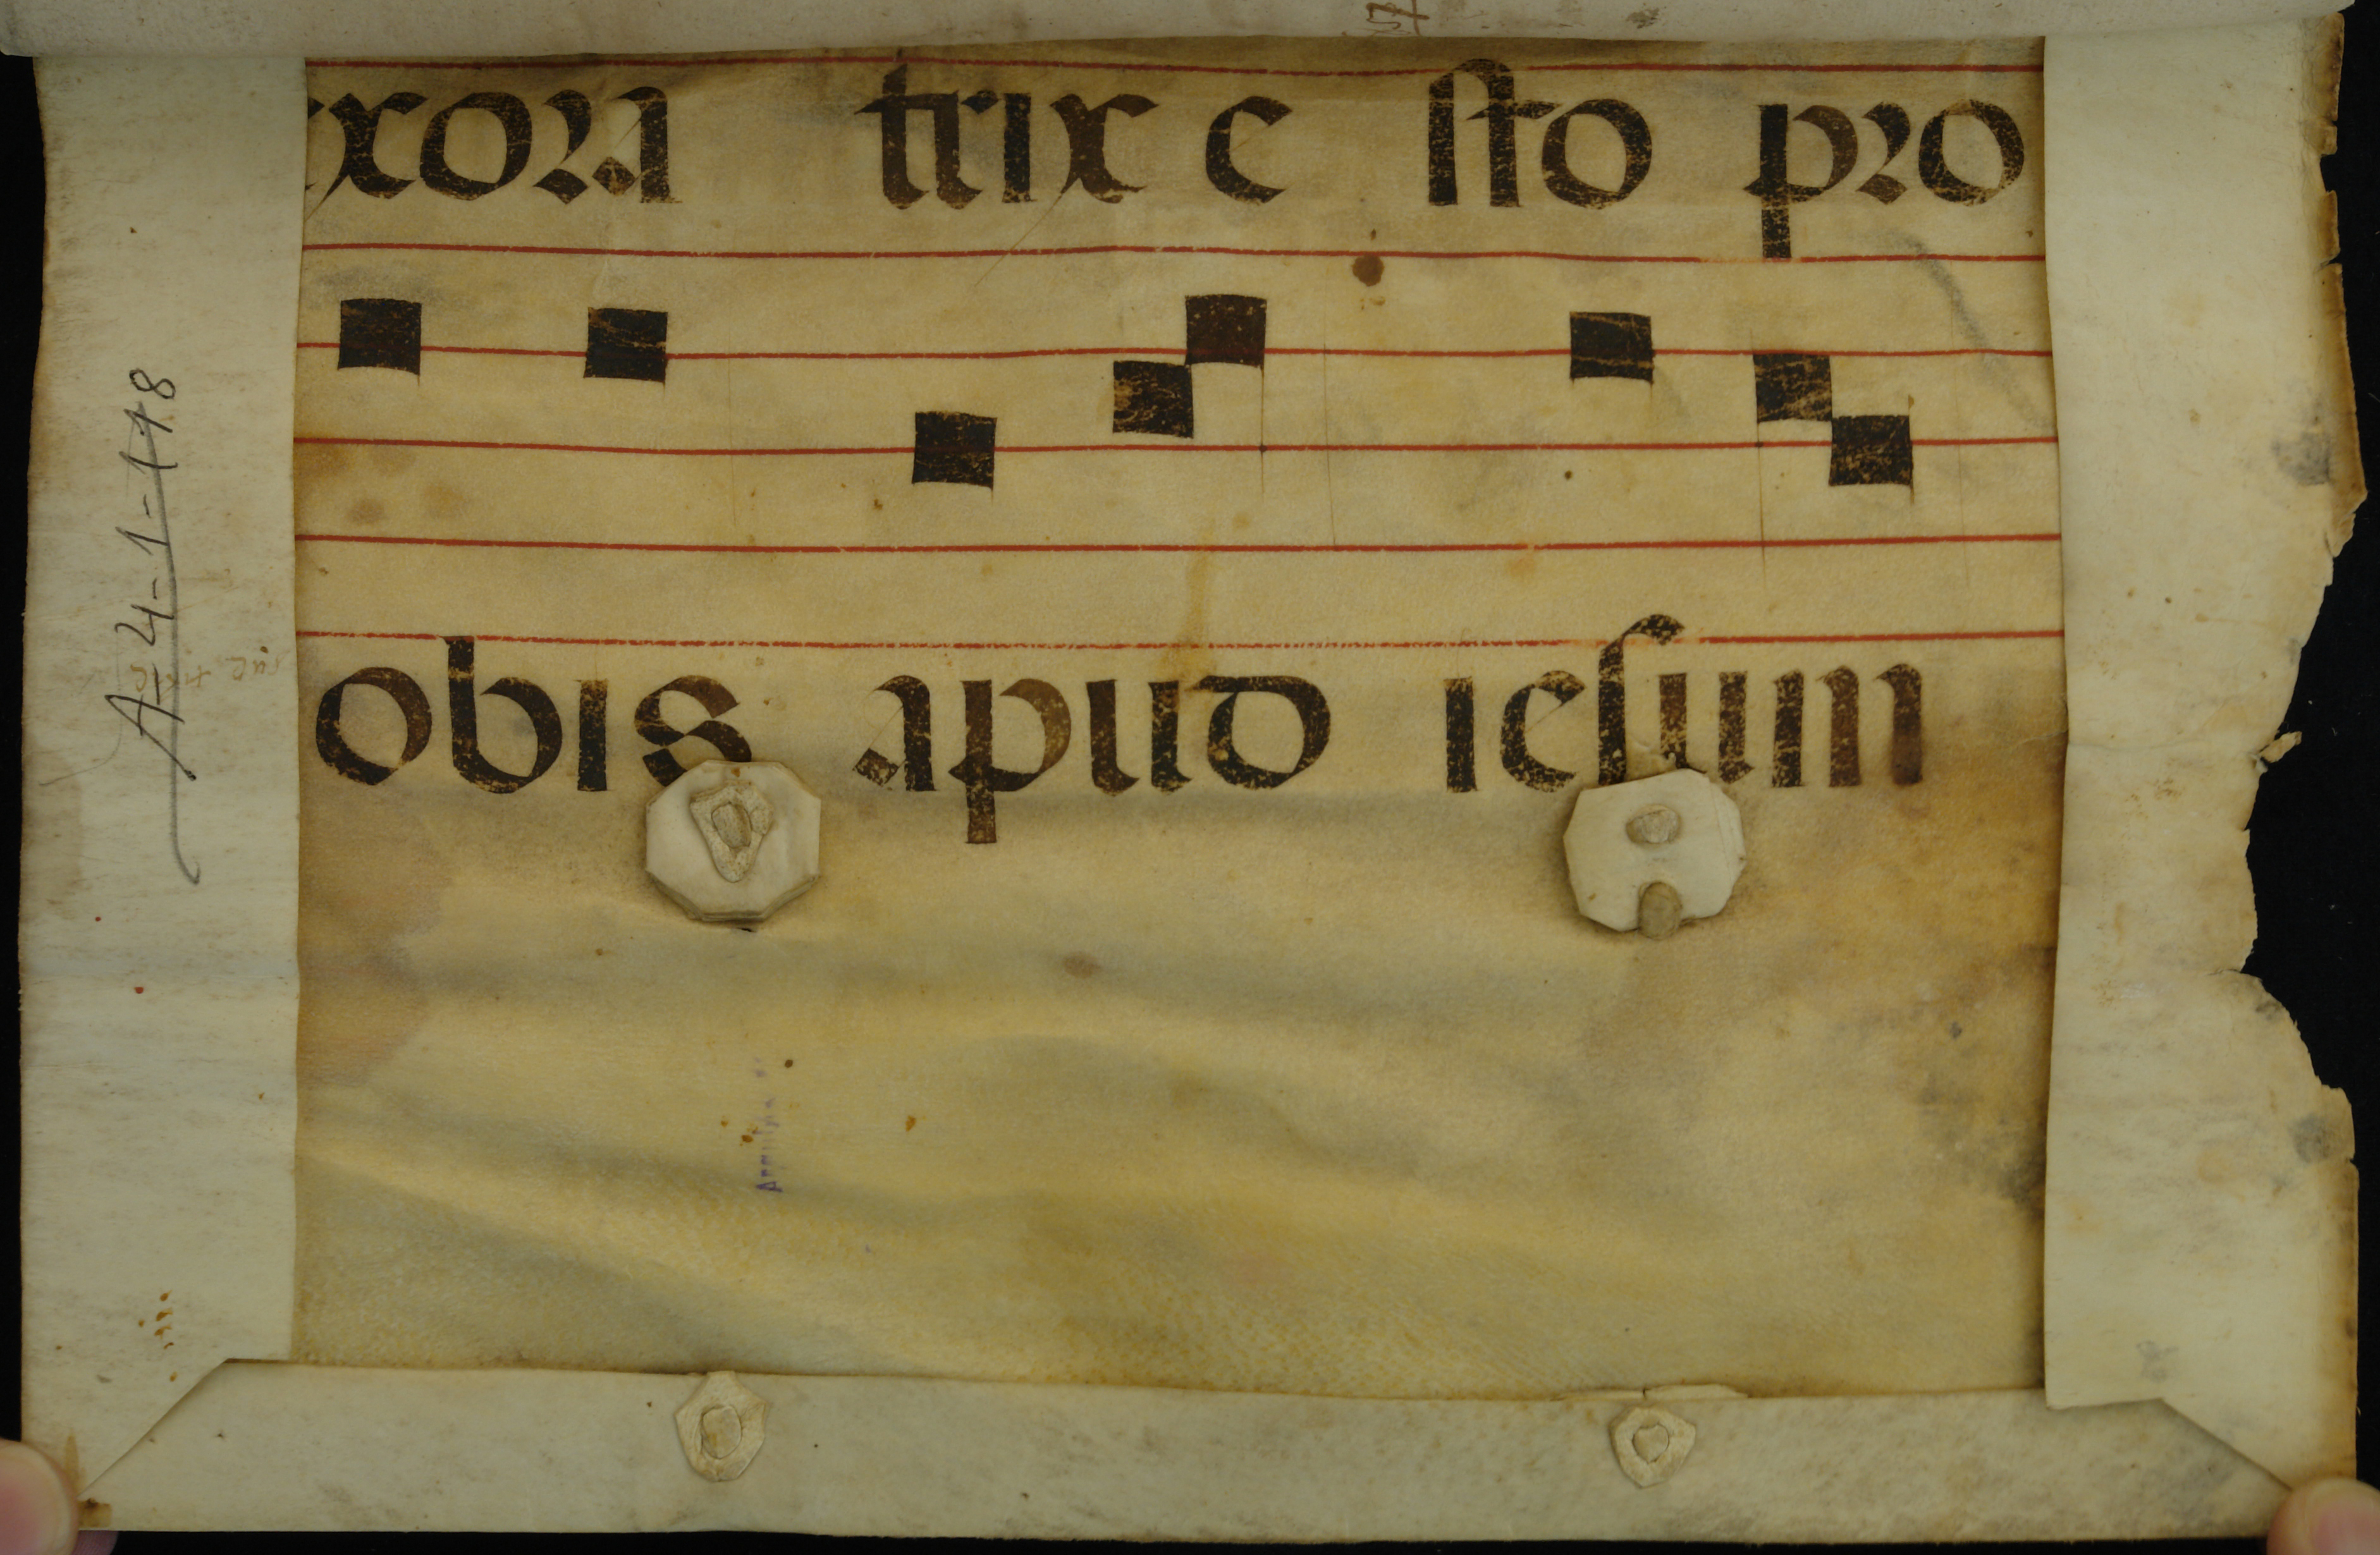 xora trix e sto pro
obis apud iesum
A-4-1-118